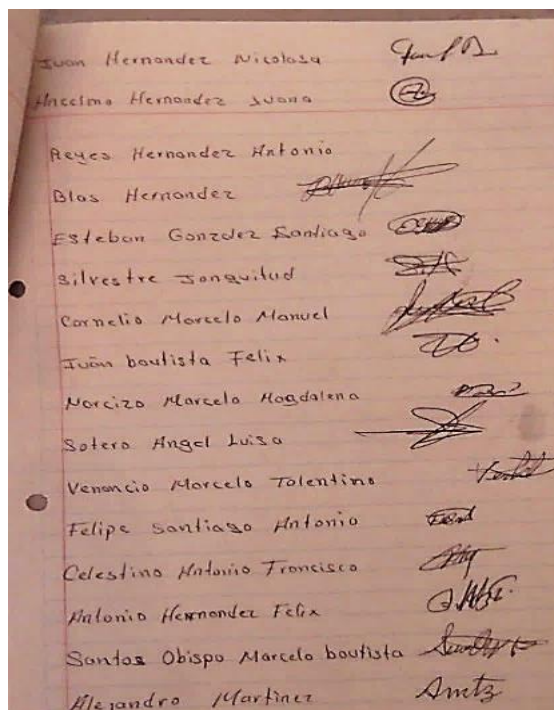 Juan Hernandez Nicolasa
Ancelmo Hernandez Juana
Reyes Hernandez Antonio
Blas Hernandez
Esteban Gonzalez Santiago
Silvestre Jonguitud
Cornelio Marcelo Manuel
Juan bautista Felix
Narcizo Marcelo Magdalena
Sotero Angel Luisa
Venancio Marcelo Tolentino
Felipe Santiago Antonio
Celestino Antonio Francisco
Antonio Hernandez Felix
Santos Obispo Marcelo bautista
Alejandro Martinez